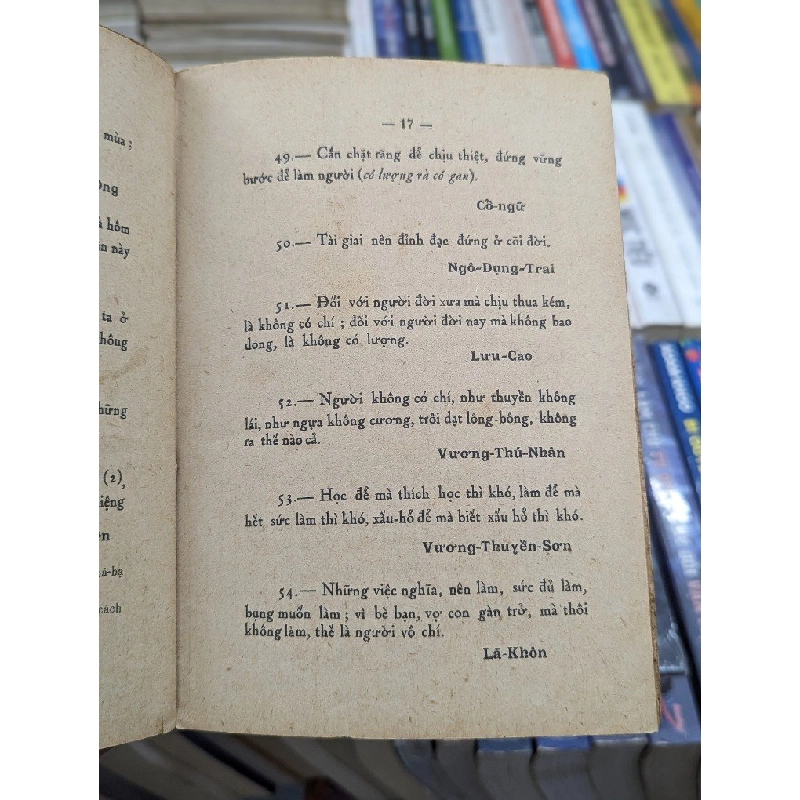 mùa ;
hôm
này
ta ở
hông
hững
(2),
iệng
ên
á-bạ
cách
— 17 —
49.— Cắn chặt răng để chịu thiệt, đứng vững
bước để làm người (có lượng và có gan).
Cổ-ngữ
50.— Tài giai nên đỉnh đạc đứng ở cõi đời.
Ngô-Dụng-Trai
51.— Đối với người đời xưa mà chịu thua kém,
là không có chí ; đối với người đời nay mà không bao
dong, là không có lượng.
Lưu-Cao
52.— Người không có chí, như thuyền không
lái, như ngựa không cương, trôi dạt lông-bông, không
ra thế nào cả.
Vương-Thú-Nhân
53.— Học để mà thích học thì khó, làm để mà
hết sức làm thì khó, xấu-hổ để mà biết xấu hổ thì khó.
Vương-Thuyền-Sơn
54.— Những việc nghĩa, nên làm, sức đủ làm,
bụng muốn làm ; vì bè bạn, vợ con gàn trở, mà thôi
không làm, thế là người vô chí.
Lã-Khôn